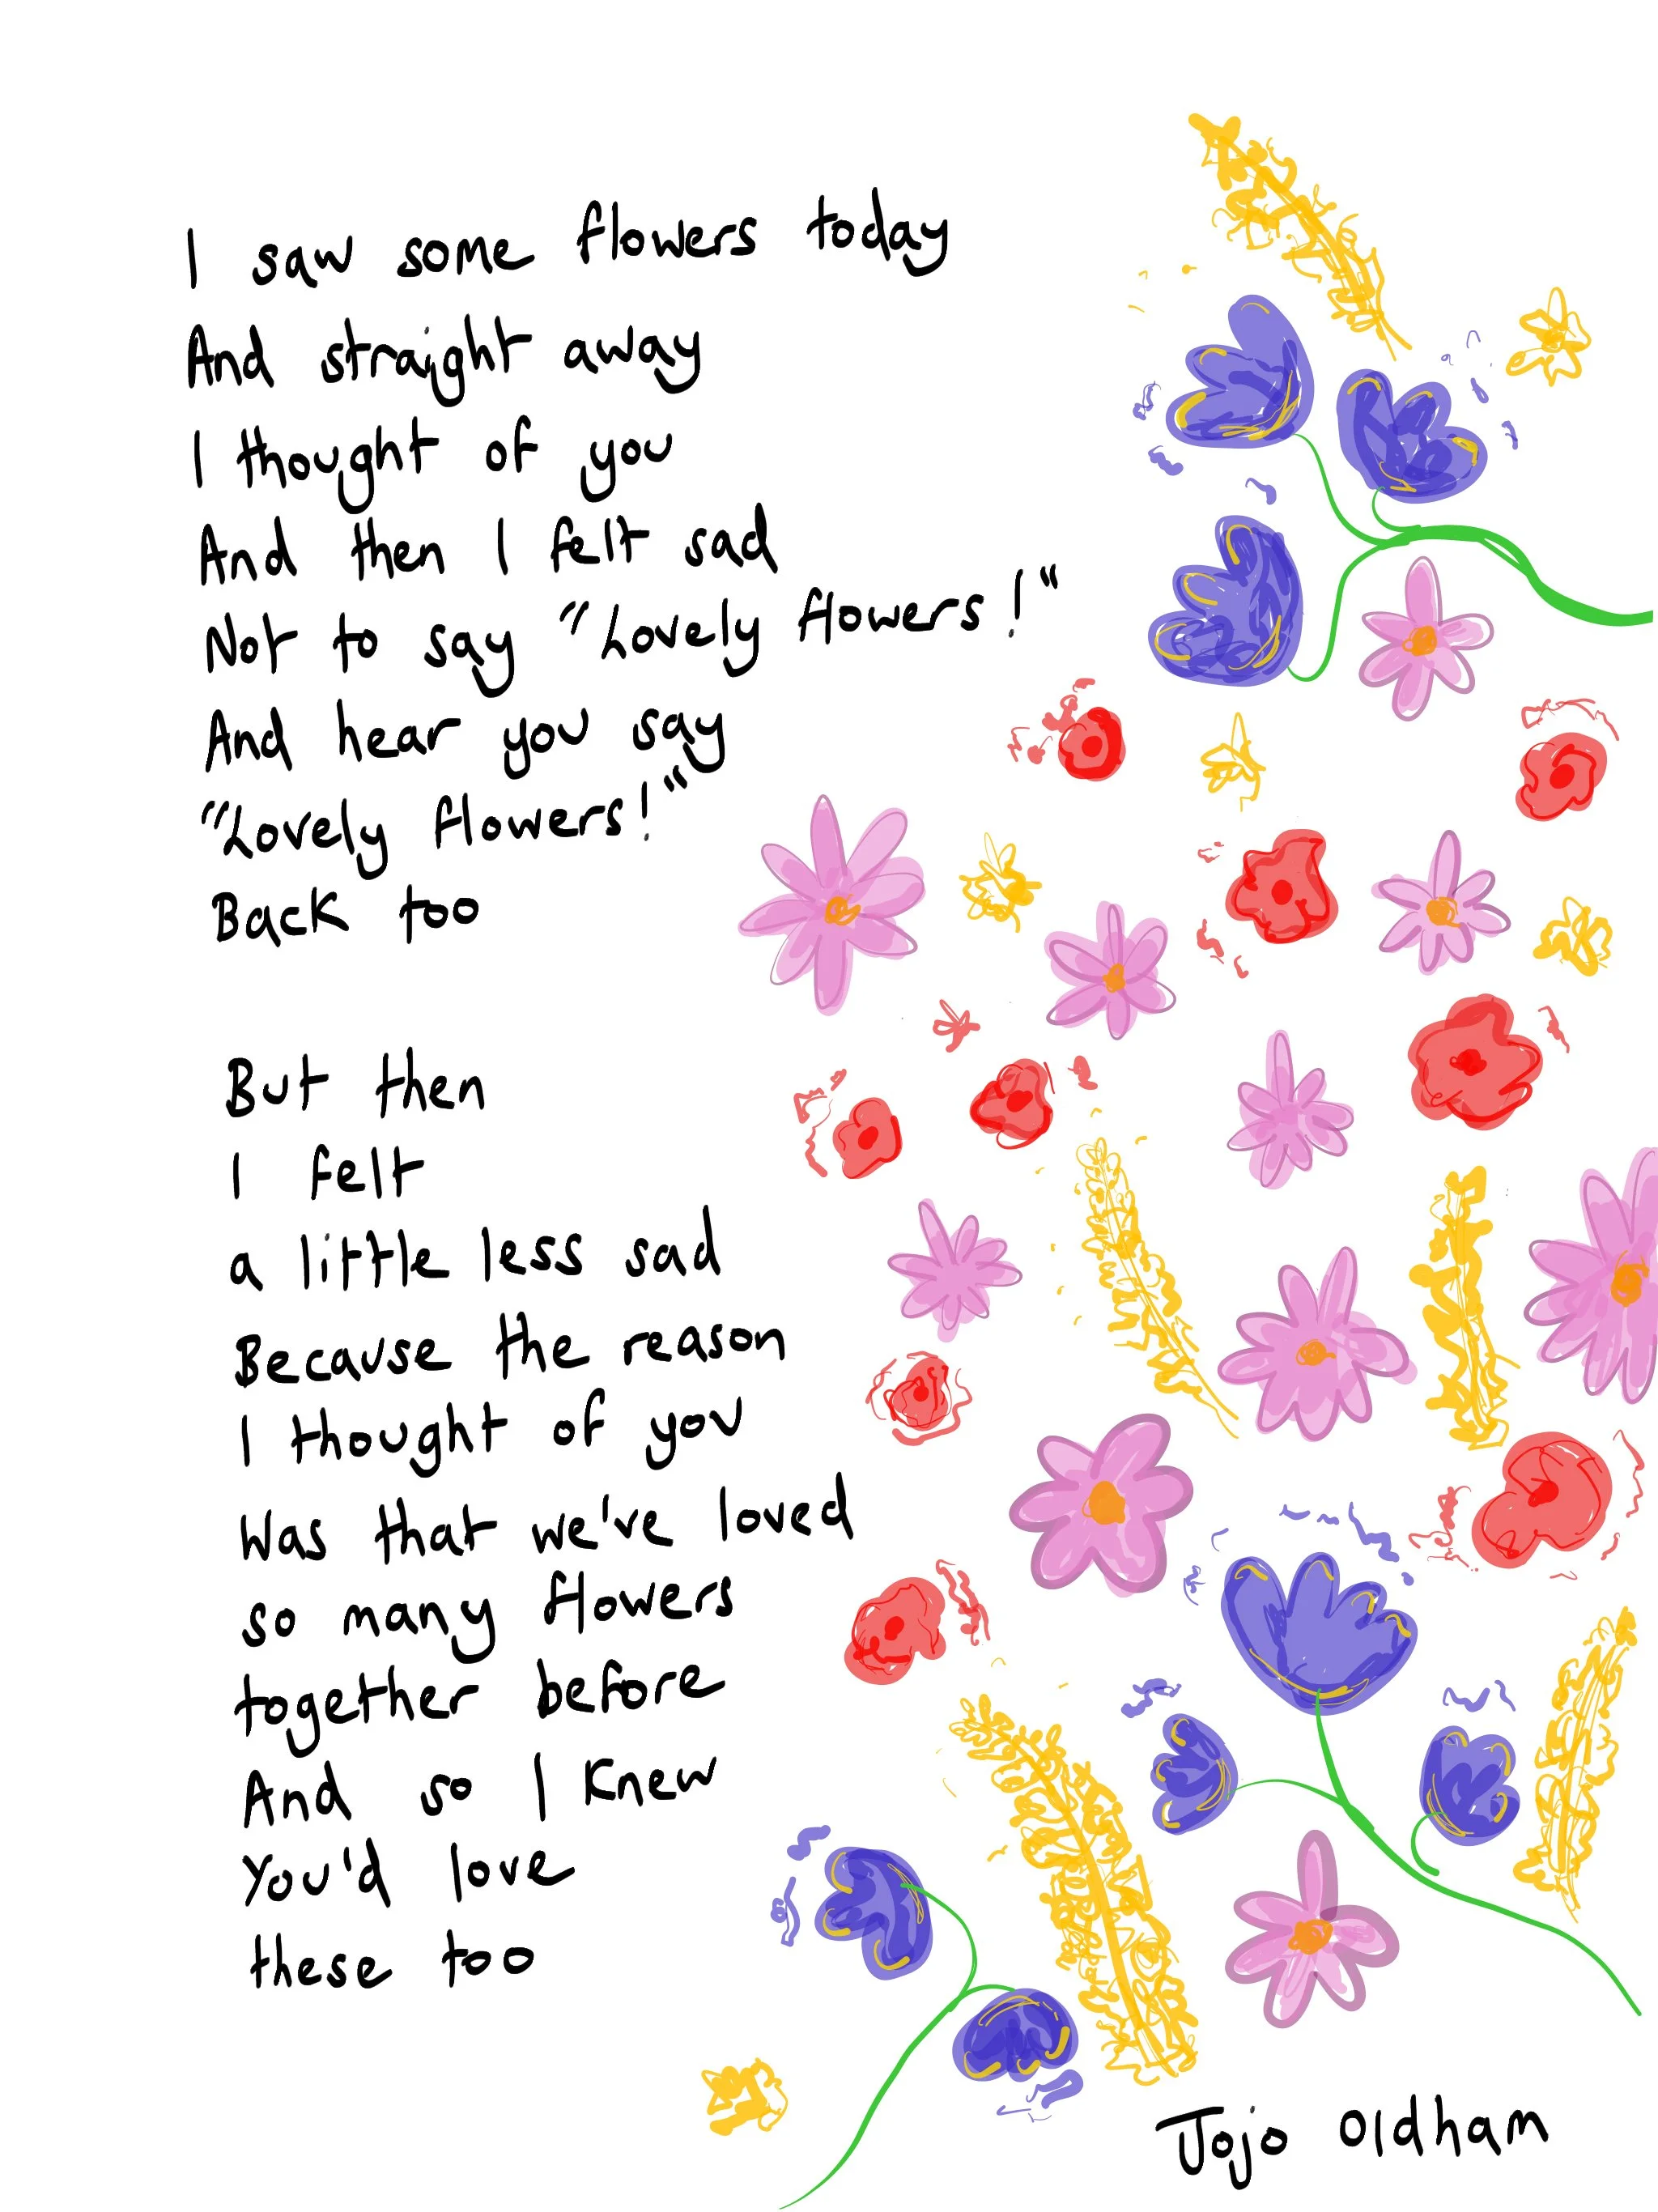 I saw some flowers today
And straight away
I thought of you
And then I felt sad
Not to say "Lovely flowers!"
And hear you say
"Lovely flowers!"
Back too
But then
I felt
a little less sad
Because the reason
I thought of you
Was that we've loved
so many flowers
together before
And so I knew
You'd love
these too
Jojo Oldham